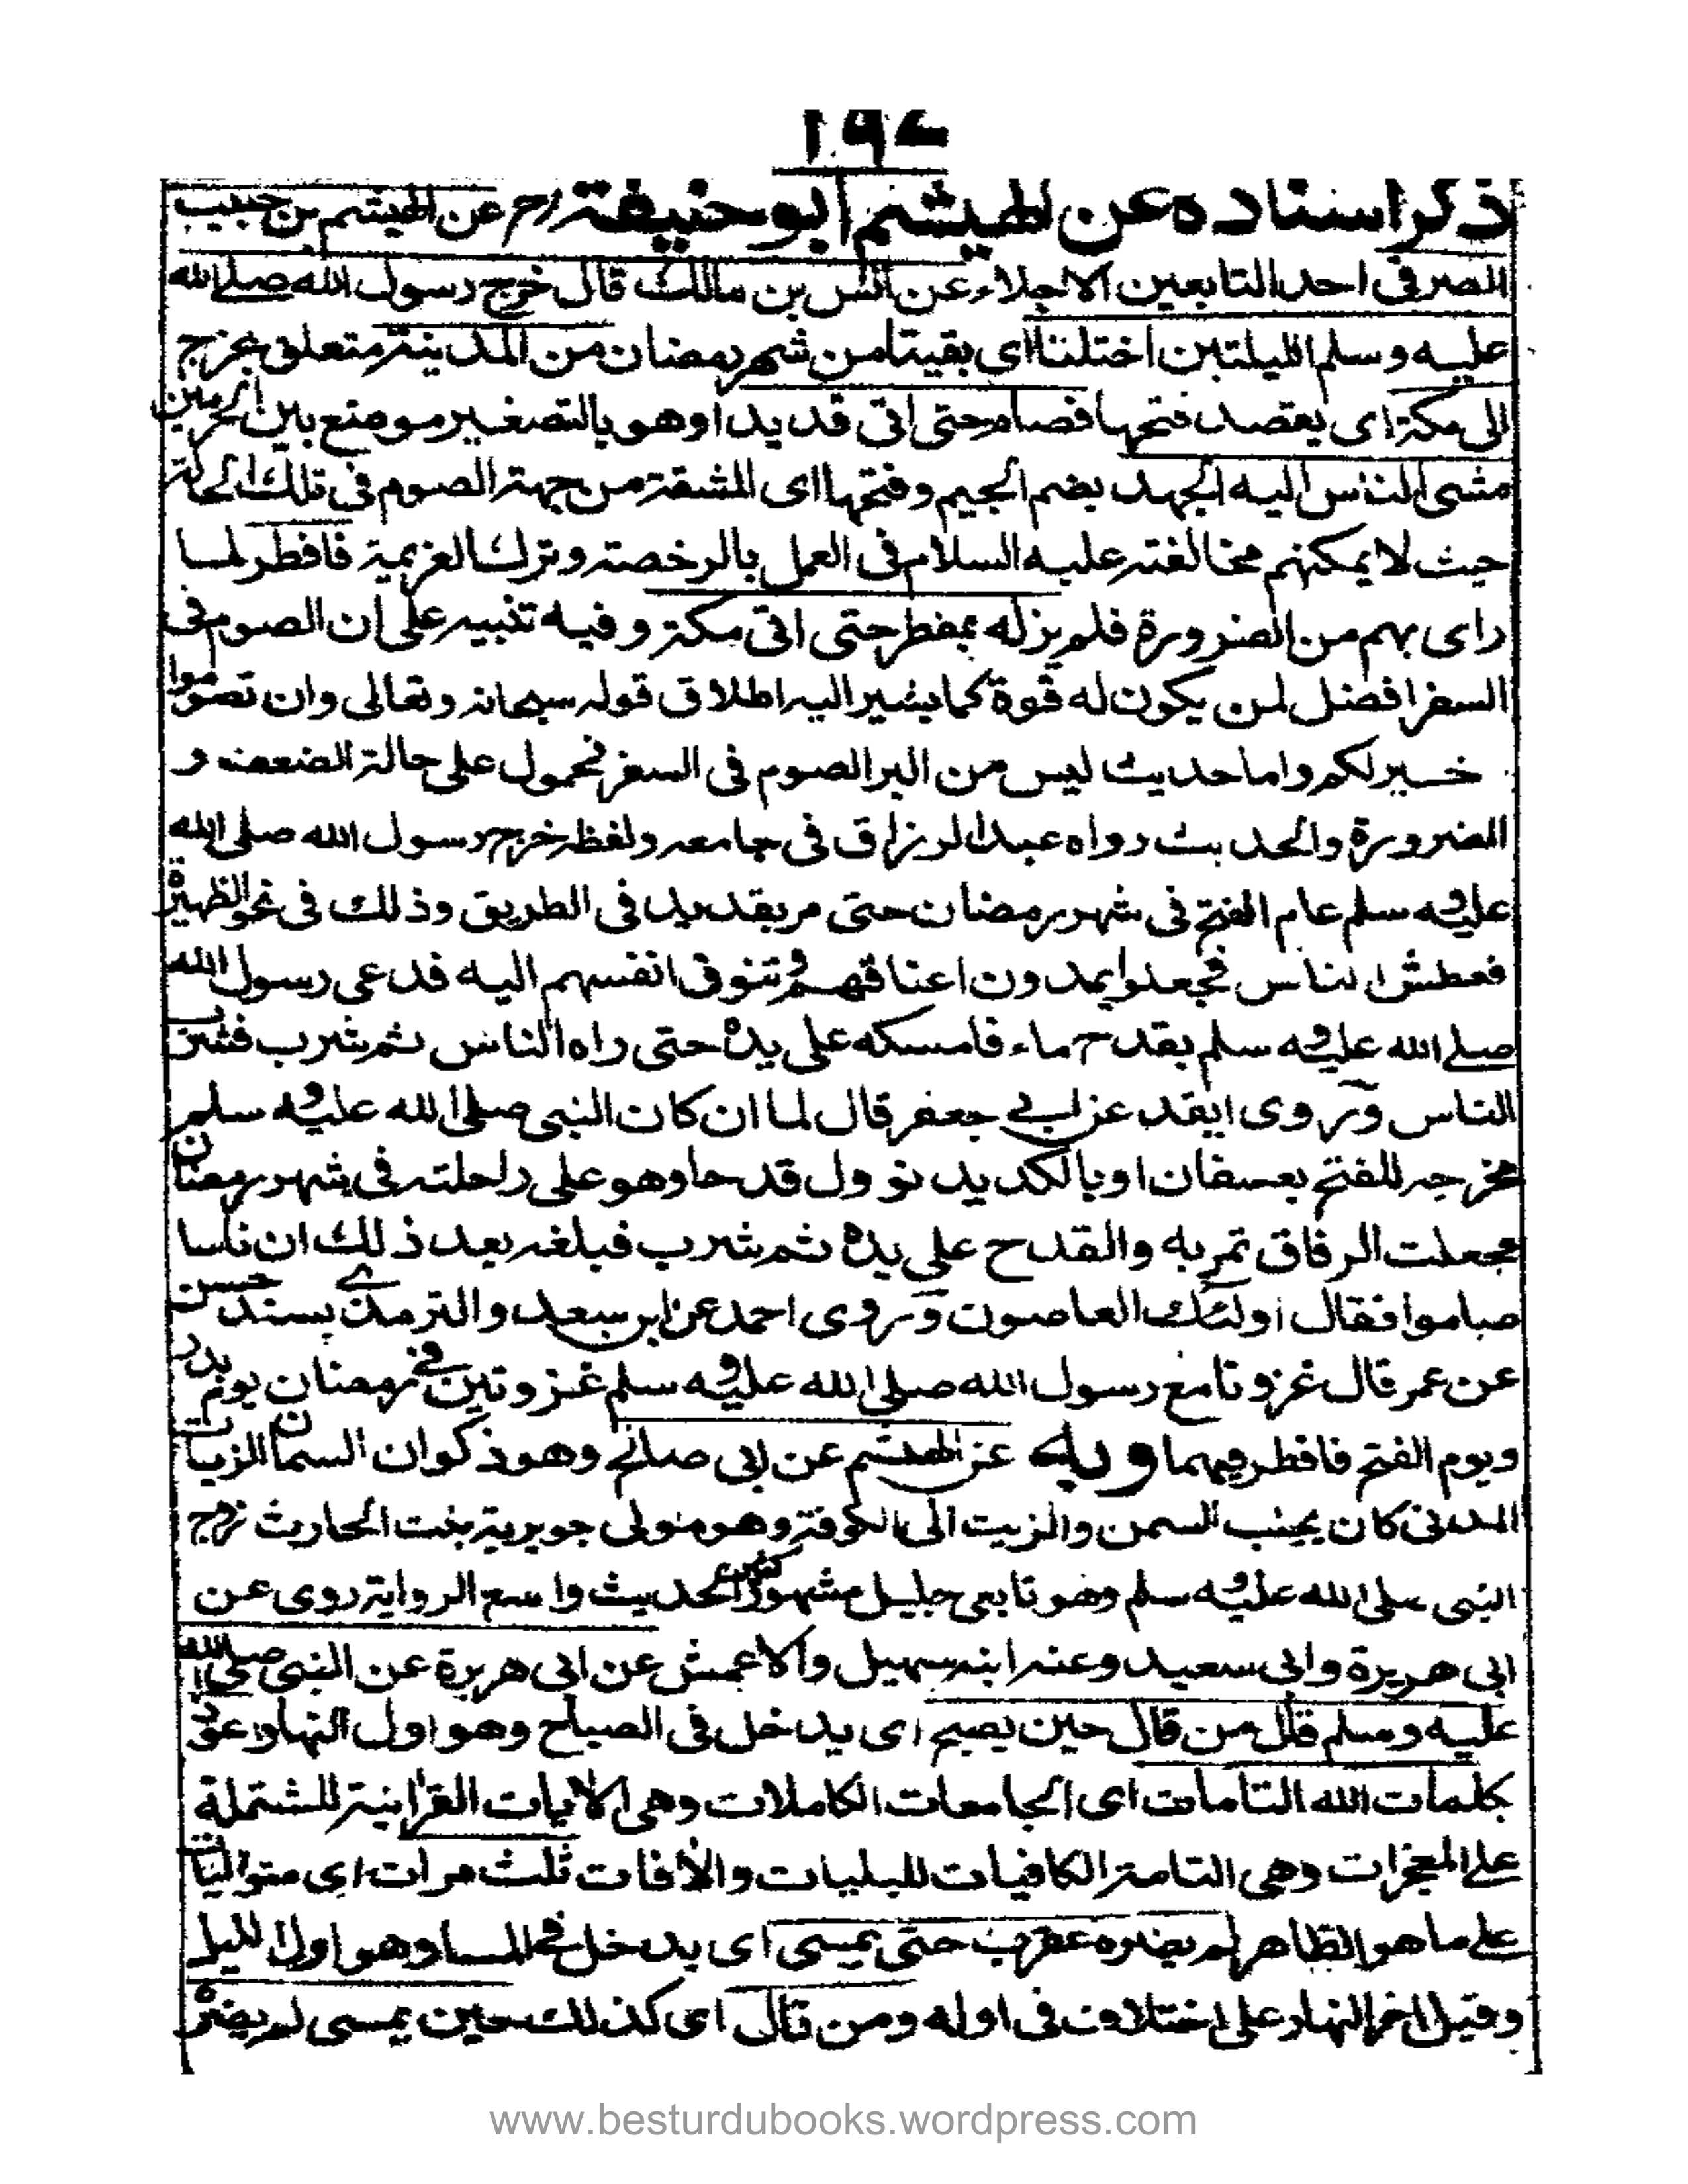 ١٩٧
ذكر اسناده عن الهيثم ابو حنيفة رح عن الهيثم بن حبيب
الصرفى احد التابعين الاجلاء عن انس بن مالك قال خرج رسول الله صلى الله
عليه وسلم لليلتين اختلنا اى بقيتا من شهر رمضان من المدينة متعلق بخرج
الى مكة اى يقصد فتحها فصام حتى اتى قديدا وهو بالتصغير موضع بين الحرمين
مشى الناس اليه الجهد بضم الجيم وفتحها اى المشقة من جهة الصوم فى تلك الحالة
حيث لا يمكنهم مخالفته عليه السلام فى العمل بالرخصة وترك العزيمة فافطر لما
راى بهم من الضرورة فلم يزله بمفطر حتى اتى مكة وفيه تنبيه على ان الصوم فى
السفر افضل لمن يكون له قوة كما يشير اليه اطلاق قوله سبحانه وتعالى وان تصوموا
خير لكم واما حديث ليس من البر الصوم فى السفر فمحمول على حالة الضعف و
الضرورة والحديث رواه عبد الرزاق فى جامعه ولفظه خرج رسول الله صلى الله
عليه وسلم عام الفتح فى شهر رمضان حتى مر بقديد فى الطريق وذلك فى نحو الظهيرة
فعطش الناس فجعلوا يمدون اعناقهم وتتوق انفسهم اليه فدعى رسول الله
صلى الله عليه وسلم بقدح ماء فامسكه على يده حتى راه الناس ثم شرب فشرب
الناس وروى ايقد عن ابى جعفر قال لما ان كان النبى صلى الله عليه وسلم
مخرجه للفتح بعسفان او بالكديد نوول قدحا وهو على راحلته فى شهر رمضان
فجعلت الرفاق تمر به والقدح على يده ثم شرب فبلغه بعد ذلك ان ناسا
صاموا فقال اولئك العاصون وروى احمد عن ابن سعد والترمذى بسند حسن
عن عمر قال غزونا مع رسول الله صلى الله عليه وسلم غزوتين فى رمضان يوم بدر
ويوم الفتح فافطر فيهما وبه عن الهيثم عن ابى صالح وهو ذكوان السمان الزيات
المدنى كان يجلب السمن والزيت الى الكوفة وهو مولى جويرية بنت الحارث زوج
النبى صلى الله عليه وسلم وهو تابعى جليل مشهور كثير الحديث واسع الرواية روى عن
ابى هريرة وابى سعيد وعنه ابنه سهيل والاعمش عن ابى هريرة عن النبى صلى الله
عليه وسلم قال من قال حين يصبح اى يدخل فى الصباح وهو اول النهار اعوذ
بكلمات الله التامات اى الجامعات الكاملات وهى الايات القرانية المشتملة
على المعجزات وهى التامة الكافيات للبليات والافات ثلث مرات اى متواليات
على ما هو الظاهر لم يضره عقرب حتى يمسى اى يدخل فى المسا وهو اول الليل
وقيل اخر النهار على اختلاف فى اوله ومن قال اى كذلك حين يمسى لم يضره
www.besturdubooks.wordpress.com